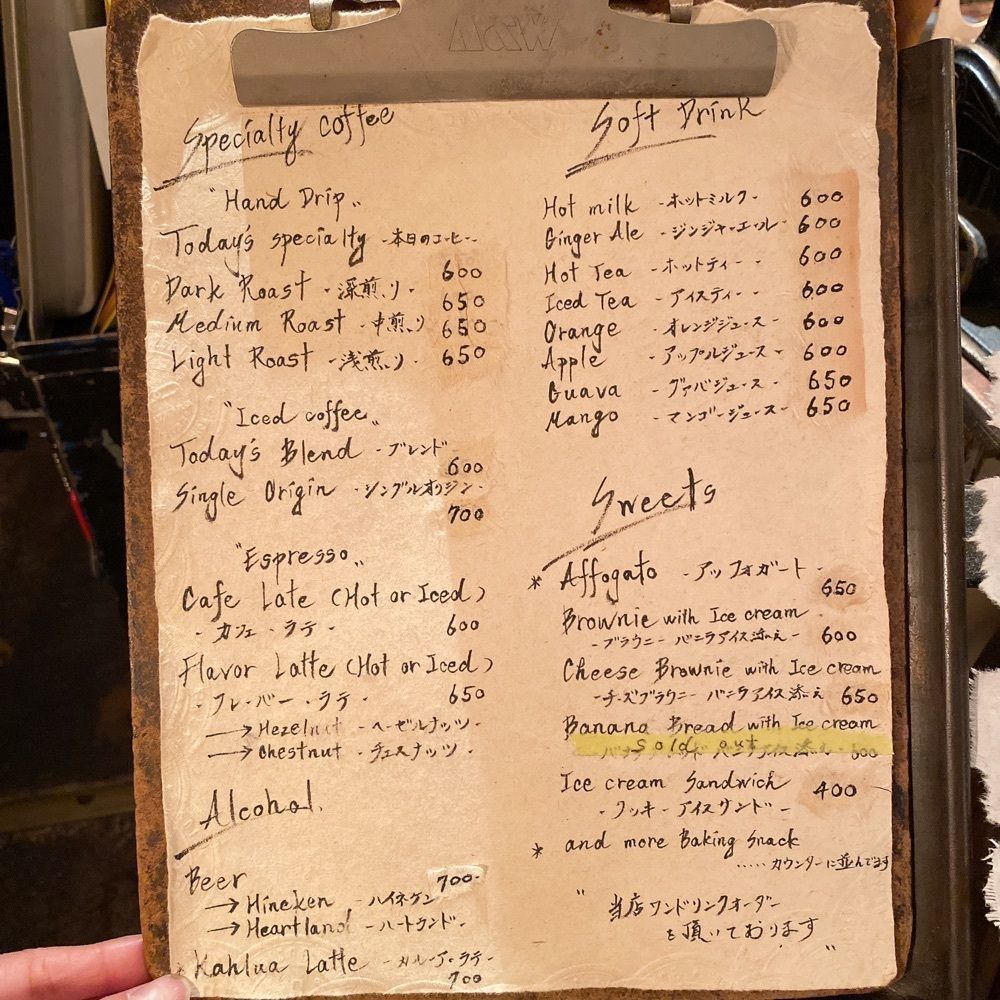 Specialty Coffee
"Hand Drip"
Today's specialty -本日のコーヒー-
600
Dark Roast -深煎り- 650
Medium Roast -中煎り 650
Light Roast -浅煎り- 650
"Iced coffee"
Today's Blend -ブレンド
600
Single Origin -シングルオリジン-
700
"Espresso"
Cafe Late (Hot or Iced)
-カフェ・ラテ- 600
Flavor Latte (Hot or Iced)
-フレーバー・ラテ- 650
→ Hezelnut -ヘーゼルナッツ-
→ Chestnut -チェスナッツ-
Alcohol.
Beer 700-
→ Hineken -ハイネケン
→ Heartland -ハートランド-
* Kahlua Latte -カルーア・ラテ-
700
Soft Drink
Hot milk -ホットミルク- 600
Ginger Ale -ジンジャーエール- 600
Hot Tea -ホットティー- 600
Iced Tea -アイスティー- 600
Orange -オレンジジュース- 600
Apple -アップルジュース- 600
Guava -グァバジュース- 650
Mango -マンゴージュース- 650
Sweets
* Affogato -アッフォガート-
650
Brownie with Ice cream
-ブラウニー バニラアイス添え- 600
Cheese Brownie with Ice cream
-チーズブラウニー バニラアイス添え 650
Banana Bread with Ice cream
sold out
バニラアイス添え- 600
Ice cream Sandwich
-クッキーアイスサンド- 400
* and more Baking snack
.....カウンターに並んでます
"当店ワンドリンクオーダー
を頂いております"